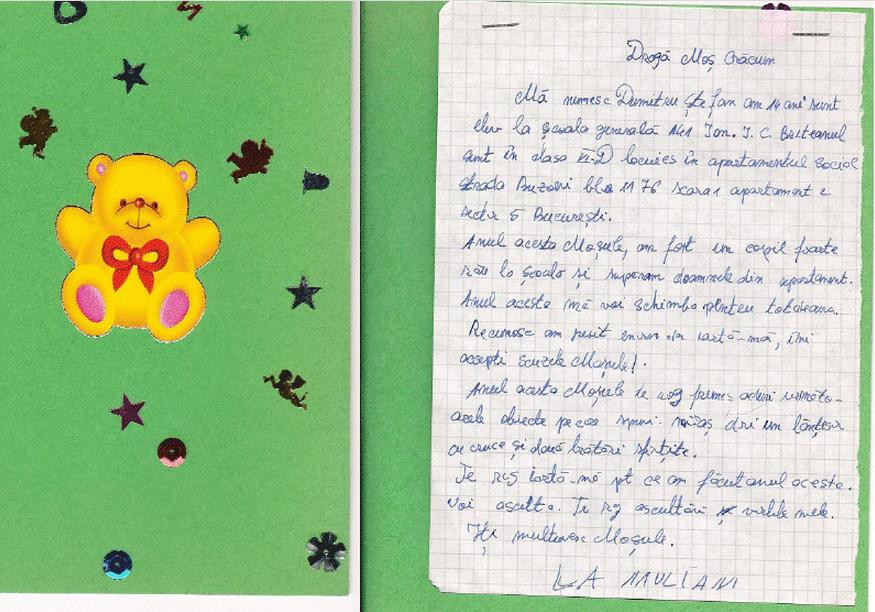 Dragă Moș Crăciun
Mă numesc Dumitru Ștefan am 14 ani sunt
elev la școala generală
sunt în clasa VI-D locuiesc în apartamentul social
strada Buzoeni 1176 scara 1 apartament 2
sector 5 București.
Anul acesta Moșule, am fost un copil foarte
rău la școală și superam doamnele din apartament.
Anul acesta mă voi schimba pentru totdeauna.
Recunosc am iartă-mă, îmi
accepți scuzele Moșule!
Anul acesta Moșule te rog
obiecte pe care un lănțișor
cu cruce și două brățări sfințite.
Te rog iartă-mă pt ce am făcut anul acesta.
Voi asculta. Te rog mele.
Îți mulțumesc Moșule.
LA MULȚI ANI